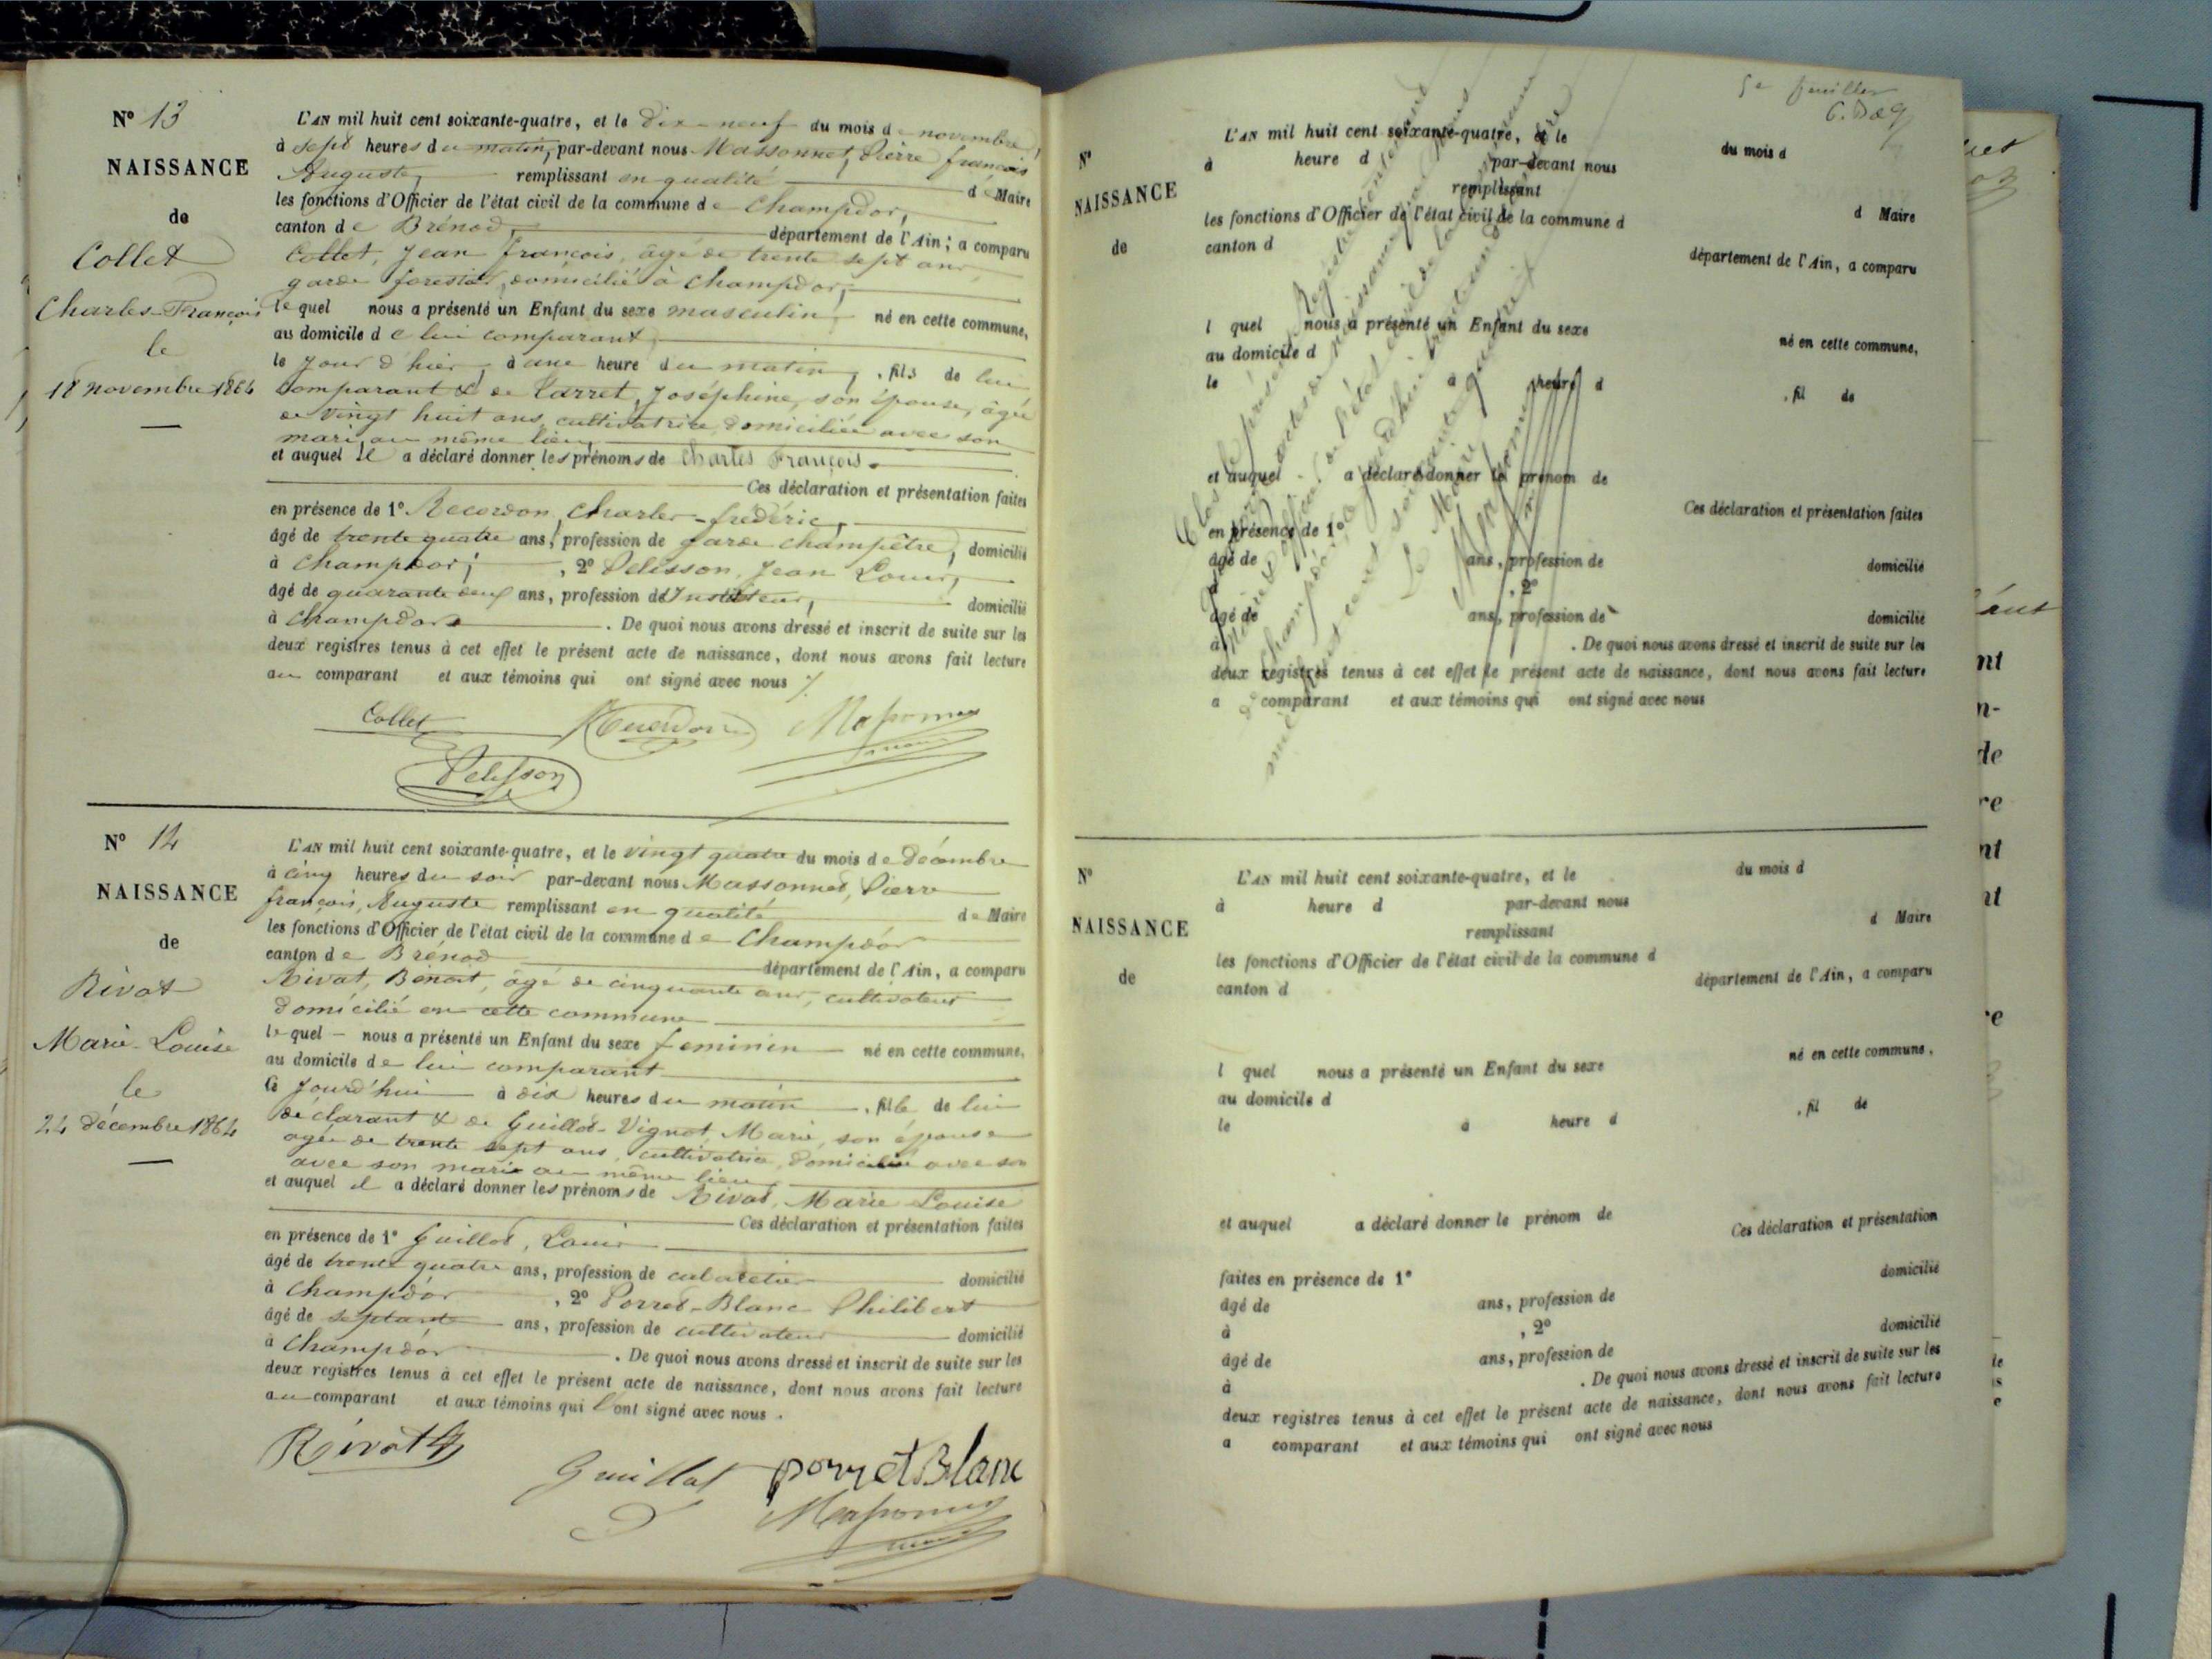 N° 13
NAISSANCE
de
Collet
Charles-François
le
18 novembre 1864
L'AN mil huit cent soixante-quatre, et le dix-neuf du mois de novembre,
à sept heures du matin, par-devant nous Massonnet, Pierre françois
Auguste, remplissant en qualité de Maire
les fonctions d'Officier de l'état civil de la commune de Champdor,
canton de Brénod, département de l'Ain; a comparu
Collet, Jean françois, âgé de trente sept ans
garde forestier, domicilié à Champdor,
lequel nous a présenté un Enfant du sexe masculin né en cette commune,
au domicile de lui comparant,
le jour d'hier, à une heure du matin, fils de lui
comparant & de Carret, Joséphine, son épouse, âgée
de vingt huit ans, cultivatrice, domiciliée avec son
mari, au même lieu,
et auquel il a déclaré donner les prénoms de Charles François.
Ces déclaration et présentation faites
en présence de 1° Recordon, Charles-frédéric,
âgé de trente quatre ans, profession de garde champêtre, domicilié
à Champdor; , 2° Pelisson, Jean Louis,
âgé de quarante deux ans, profession d'Instituteur, domicilié
à Champdor . De quoi nous avons dressé et inscrit de suite sur les
deux registres tenus à cet effet le présent acte de naissance, dont nous avons fait lecture
au comparant et aux témoins qui ont signé avec nous
Collet
Massonnet
maire
Pelisson
N° 14
NAISSANCE
de
Rivat
Marie-Louise
le
24 décembre 1864
L'AN mil huit cent soixante-quatre, et le vingt quatre du mois de décembre
à cinq heures du soir par-devant nous Massonnet, Pierre
françois, Auguste remplissant en qualité de Maire
les fonctions d'Officier de l'état civil de la commune de Champdor
canton de Brénod département de l'Ain, a comparu
Rivat, Benoit, âgé de cinquante ans, cultivateur
domicilié en cette commune
lequel nous a présenté un Enfant du sexe feminin né en cette commune,
au domicile de lui comparant
Ce jourd'hui à dix heures du matin , fille de lui
déclarant & de Guillot-Vignot, Marie, son épouse
agée de trente sept ans, cultivatrice, domiciliée avec son
avec son mari au même lieu
et auquel il a déclaré donner les prénoms de Rivat, Marie Louise
Ces déclaration et présentation faites
en présence de 1° Guillot, Louis
âgé de trente quatre ans, profession de cabaretier domicilié
à Champdor , 2° Porret-Blanc Philibert
âgé de septante ans, profession de cultivateur domicilié
à Champdor . De quoi nous avons dressé et inscrit de suite sur les
deux registres tenus à cet effet le présent acte de naissance, dont nous avons fait lecture
au comparant et aux témoins qui l'ont signé avec nous .
Rivat
Guillot
porretBlanc
Massonnet
maire
N°
NAISSANCE
de
L'AN mil huit cent soixante-quatre, et le du mois d
à heure d par-devant nous
remplissant d Maire
les fonctions d'Officier de l'état civil de la commune d
canton d département de l'Ain, a comparu
l quel nous a présenté un Enfant du sexe né en cette commune,
au domicile d
le à heure d , fil de
et auquel a déclaré donner le prénom de
Ces déclaration et présentation faites
en présence de 1°
âgé de ans, profession de domicilié
à , 2°
âgé de ans, profession de domicilié
à . De quoi nous avons dressé et inscrit de suite sur les
deux registres tenus à cet effet le présent acte de naissance, dont nous avons fait lecture
a comparant et aux témoins qui ont signé avec nous
Clos le présent Registre
actes de naissance
de l'état civil de la
Champdor, aujourd'hui trente un
mil huit cent soixante quatre
Le Maire
N°
NAISSANCE
de
L'AN mil huit cent soixante-quatre, et le du mois d
à heure d par-devant nous
remplissant d Maire
les fonctions d'Officier de l'état civil de la commune d
canton d département de l'Ain, a comparu
l quel nous a présenté un Enfant du sexe né en cette commune,
au domicile d
le à heure d , fil de
et auquel a déclaré donner le prénom de
Ces déclaration et présentation
faites en présence de 1° domicilié
âgé de ans, profession de
à , 2° domicilié
âgé de ans, profession de
à . De quoi nous avons dressé et inscrit de suite sur les
deux registres tenus à cet effet le présent acte de naissance, dont nous avons fait lecture
a comparant et aux témoins qui ont signé avec nous